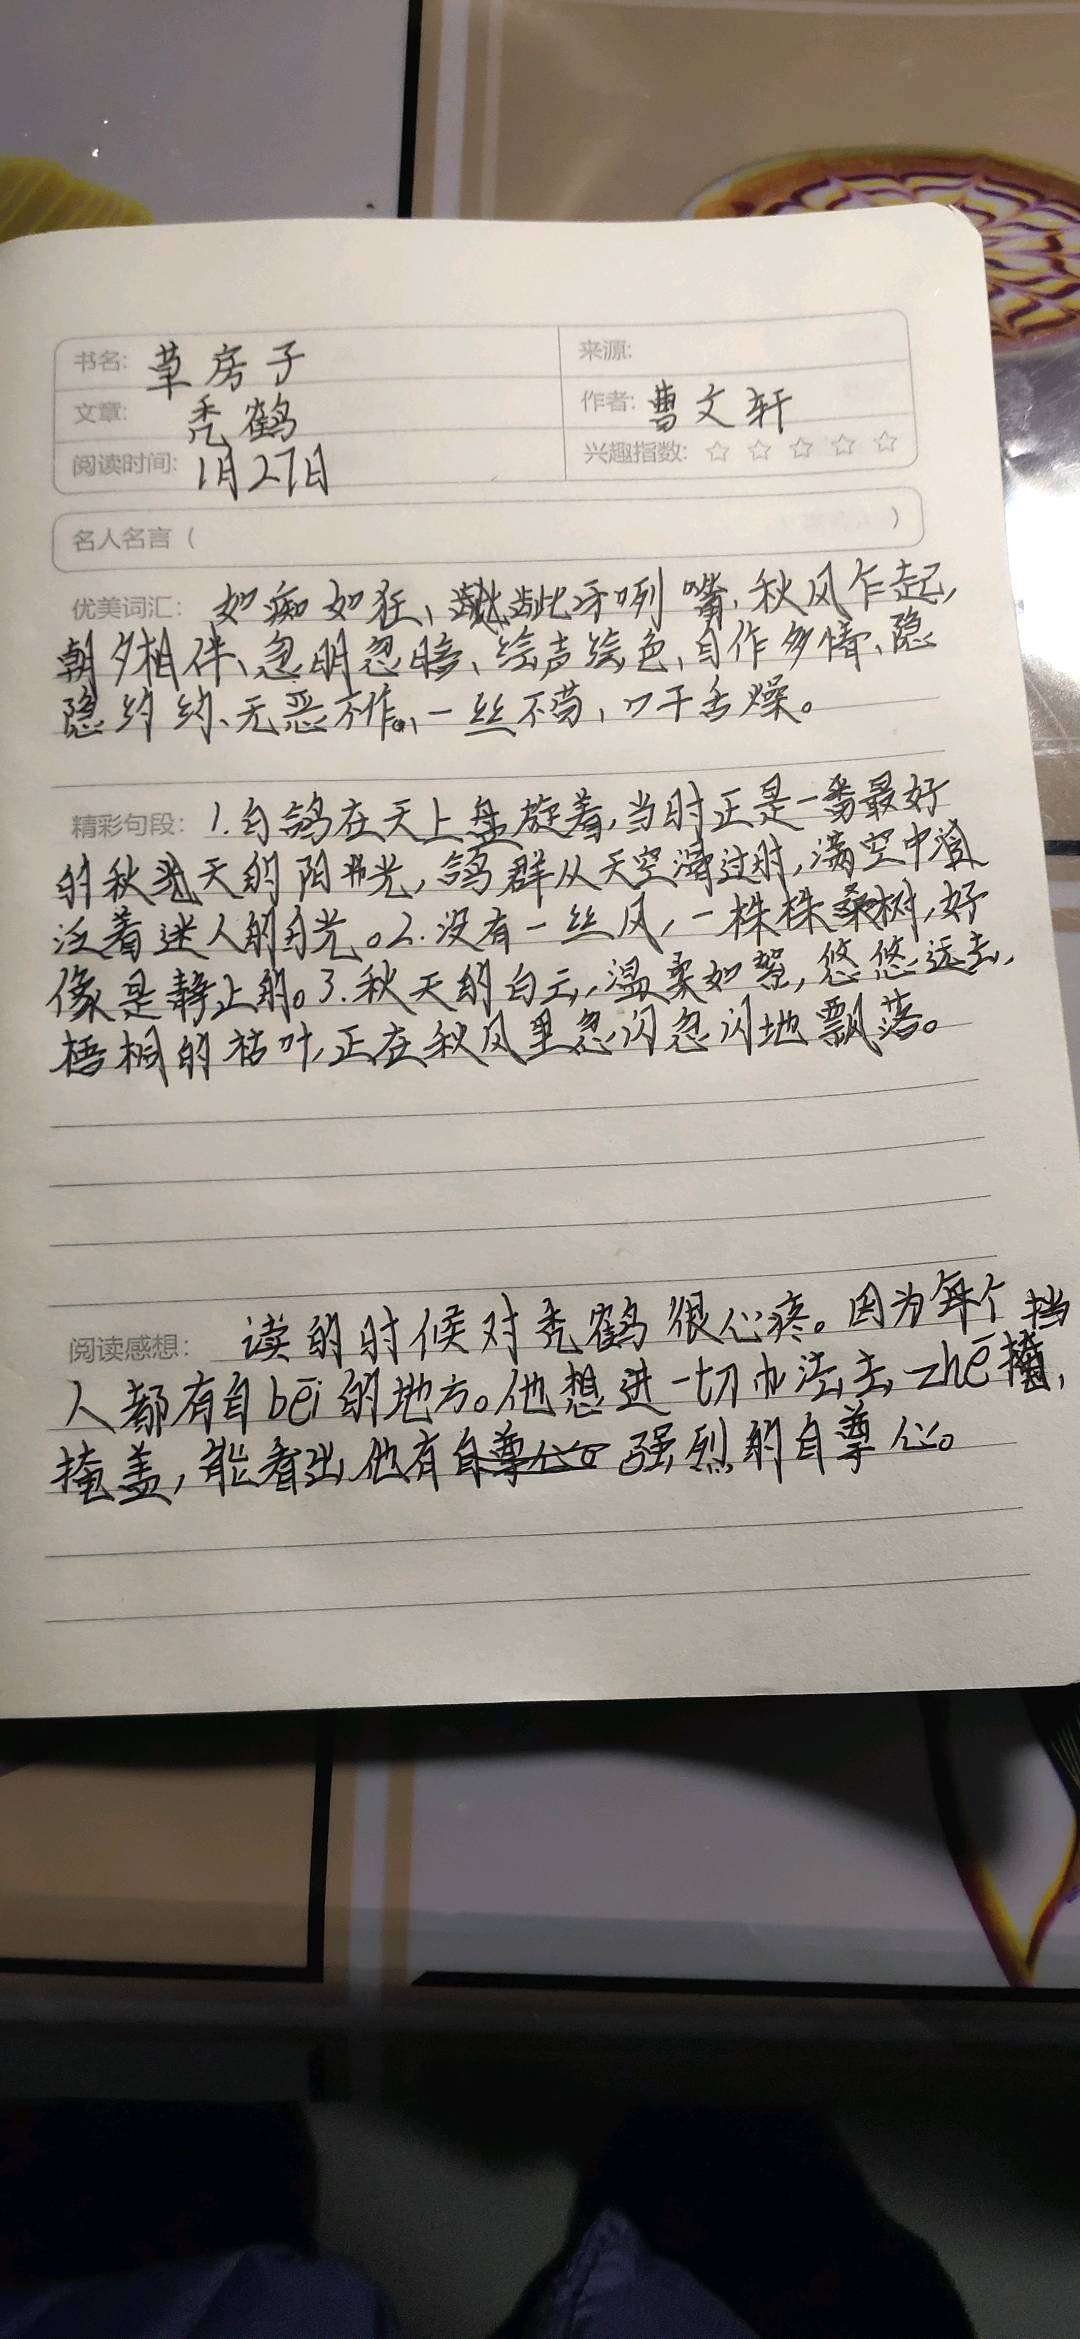 书名: 草房子
来源:
文章: 秃鹤
作者: 曹文轩
阅读时间: 1月27日
兴趣指数: ☆ ☆ ☆ ☆ ☆
名人名言 ( )
优美词汇: 如痴如狂、龇牙咧嘴、秋风乍起,
朝夕相伴、忽明忽暗、绘声绘色、自作多情、隐
隐约约、无恶不作、一丝不苟、口干舌燥。
精彩句段: 1.白鸽在天上盘旋着,当时正是一番最好
的秋天的阳光,鸽群从天空滑过时,满空中
泛着迷人的白光。2.没有一丝风,一株株桑树,好
像是静止的。3.秋天的白云,温柔如絮,悠悠远去,
梧桐的枯叶,正在秋风里忽闪忽闪地飘落。
阅读感想: 读的时候对秃鹤很心疼。因为每个
人都有自bēi的地方。他想进一切办法去zhē挡,
掩盖,能看出他有强烈的自尊心。